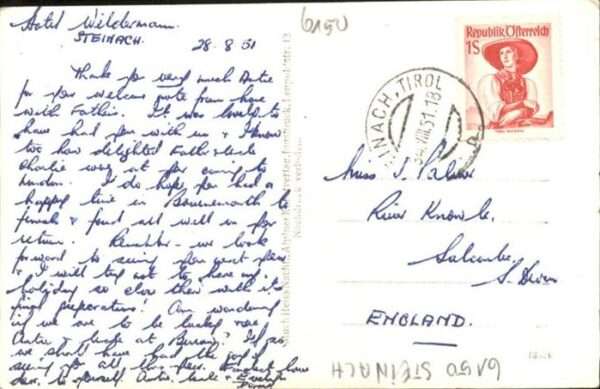 Hotel Wildermann
STEINACH.
28.8.51
6150
Thank you very much Auntie
for your welcome note from home
with Father. It was lovely to
have had you with us & I know
too how delighted Father & Uncle
Charlie were at your coming to
London. I do hope you had a
happy time in Bournemouth to
finish & found all well on your
return. Remember - we look
forward to seeing you next year
& I will try not to have my
holiday so close then with its
final preparations! Am wondering
if we are to be lucky
Auntie & at If so,
we should have had the joy of
seeing you all this year. love
dear to yourself, Auntie, Uncle & Evelyn
Republik Österreich
1S
STEINACH, TIROL
VIII.51.18
Miss J. Palmer
River Knowle.
Salcombe.
S. Devon
ENGLAND.
6150 STEINACH